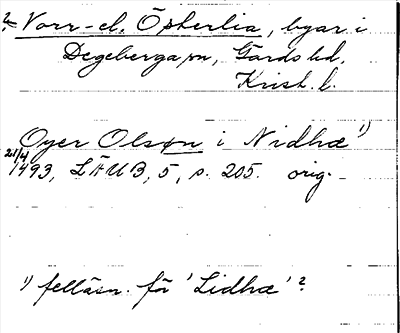 ?. Norr- el. Österlia, byar i
Degeberga sn, Gärds hd,
Krist. l.
Oyer Olsøn i Nidhæ 1)
21/4
1493, LÄUB, 5, s. 205. orig.
1) felläsn. för 'Lidhæ'?